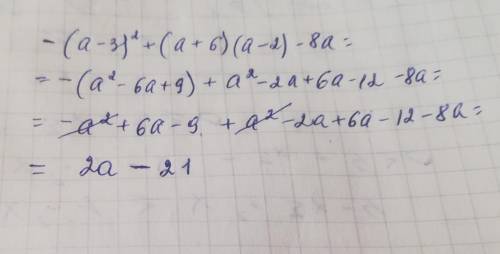 -(a-3)²+(a+6)(a-2)-8a=
=-(a²-6a+9)+a²-2a+6a-12-8a=
=-a²+6a-9+a²-2a+6a-12-8a=
= 2a - 21